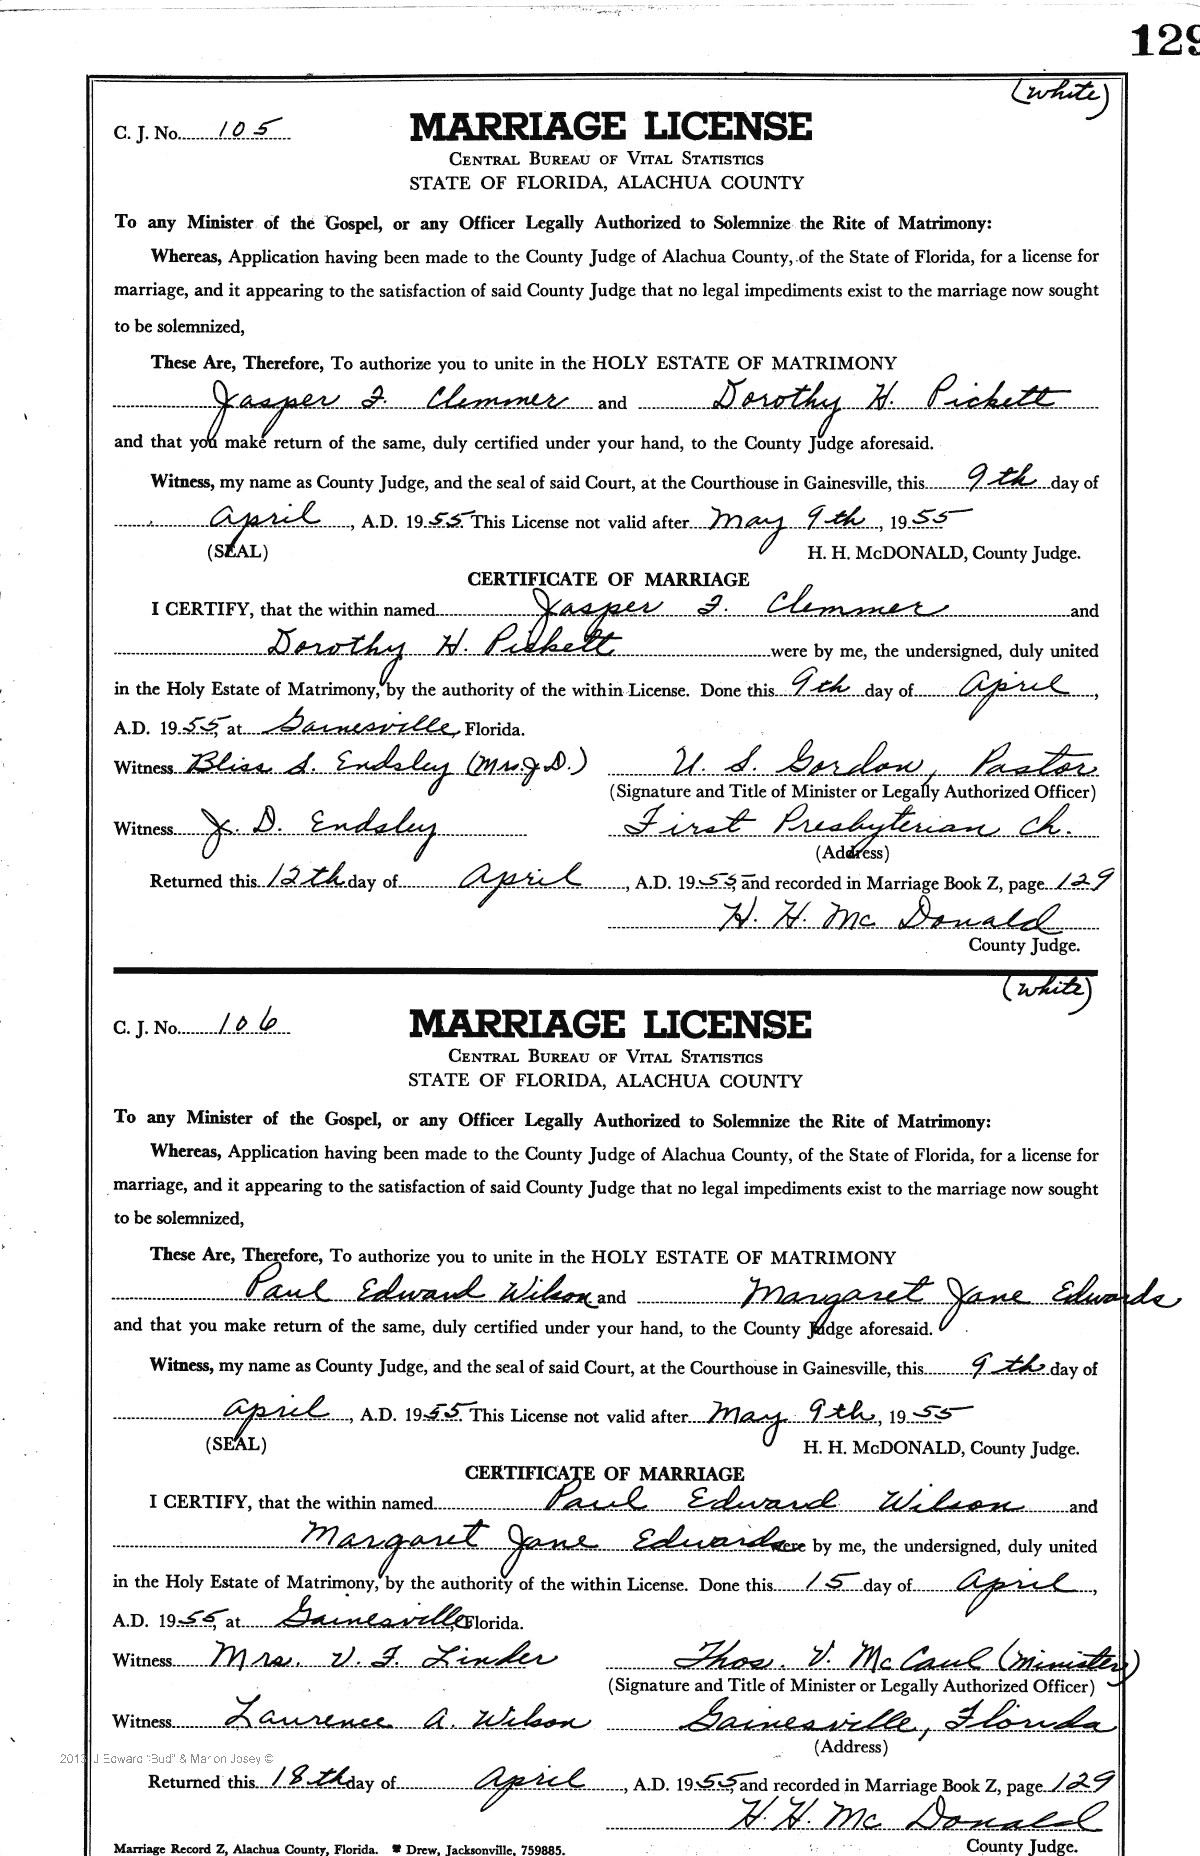 129
(white)
C. J. No. 105 MARRIAGE LICENSE
CENTRAL BUREAU OF VITAL STATISTICS
STATE OF FLORIDA, ALACHUA COUNTY
To any Minister of the Gospel, or any Officer Legally Authorized to Solemnize the Rite of Matrimony:
Whereas, Application having been made to the County Judge of Alachua County, of the State of Florida, for a license for
marriage, and it appearing to the satisfaction of said County Judge that no legal impediments exist to the marriage now sought
to be solemnized,
These Are, Therefore, To authorize you to unite in the HOLY ESTATE OF MATRIMONY
Jasper F. Clemmer and Dorothy H. Pickett
and that you make return of the same, duly certified under your hand, to the County Judge aforesaid.
Witness, my name as County Judge, and the seal of said Court, at the Courthouse in Gainesville, this 9th day of
April, A.D. 1955. This License not valid after May 9th, 1955
(SEAL) H. H. McDONALD, County Judge.
CERTIFICATE OF MARRIAGE
I CERTIFY, that the within named Jasper F. Clemmer and
Dorothy H. Pickett were by me, the undersigned, duly united
in the Holy Estate of Matrimony, by the authority of the within License. Done this 9th day of April,
A.D. 1955, at Gainesville, Florida.
Witness Bliss S. Endsley (Mrs. J D.) U. S. Gordon, Pastor
(Signature and Title of Minister or Legally Authorized Officer)
Witness J. D. Endsley First Presbyterian Ch.
(Address)
Returned this 12th day of April, A.D. 1955, and recorded in Marriage Book Z, page 129
H. H. Mc Donald
County Judge.
(white)
C. J. No. 106 MARRIAGE LICENSE
CENTRAL BUREAU OF VITAL STATISTICS
STATE OF FLORIDA, ALACHUA COUNTY
To any Minister of the Gospel, or any Officer Legally Authorized to Solemnize the Rite of Matrimony:
Whereas, Application having been made to the County Judge of Alachua County, of the State of Florida, for a license for
marriage, and it appearing to the satisfaction of said County Judge that no legal impediments exist to the marriage now sought
to be solemnized,
These Are, Therefore, To authorize you to unite in the HOLY ESTATE OF MATRIMONY
Paul Edward Wilson and Margaret Jane Edwards
and that you make return of the same, duly certified under your hand, to the County Judge aforesaid.
Witness, my name as County Judge, and the seal of said Court, at the Courthouse in Gainesville, this 9th day of
April, A.D. 1955. This License not valid after May 9th, 1955
(SEAL) H. H. McDONALD, County Judge.
CERTIFICATE OF MARRIAGE
I CERTIFY, that the within named Paul Edward Wilson and
Margaret Jane Edwards were by me, the undersigned, duly united
in the Holy Estate of Matrimony, by the authority of the within License. Done this 15 day of April,
A.D. 1955, at Gainesville, Florida.
Witness Mrs. V. F. Linder Thos. V. McCaul (Minister)
(Signature and Title of Minister or Legally Authorized Officer)
Witness Laurence A. Wilson Gainesville, Florida
(Address)
2013 J Edward "Bud" & Marion Josey ©
Returned this 18th day of April, A.D. 1955, and recorded in Marriage Book Z, page 129
H. H. Mc Donald
County Judge.
Marriage Record Z, Alachua County, Florida. Drew, Jacksonville, 759885.